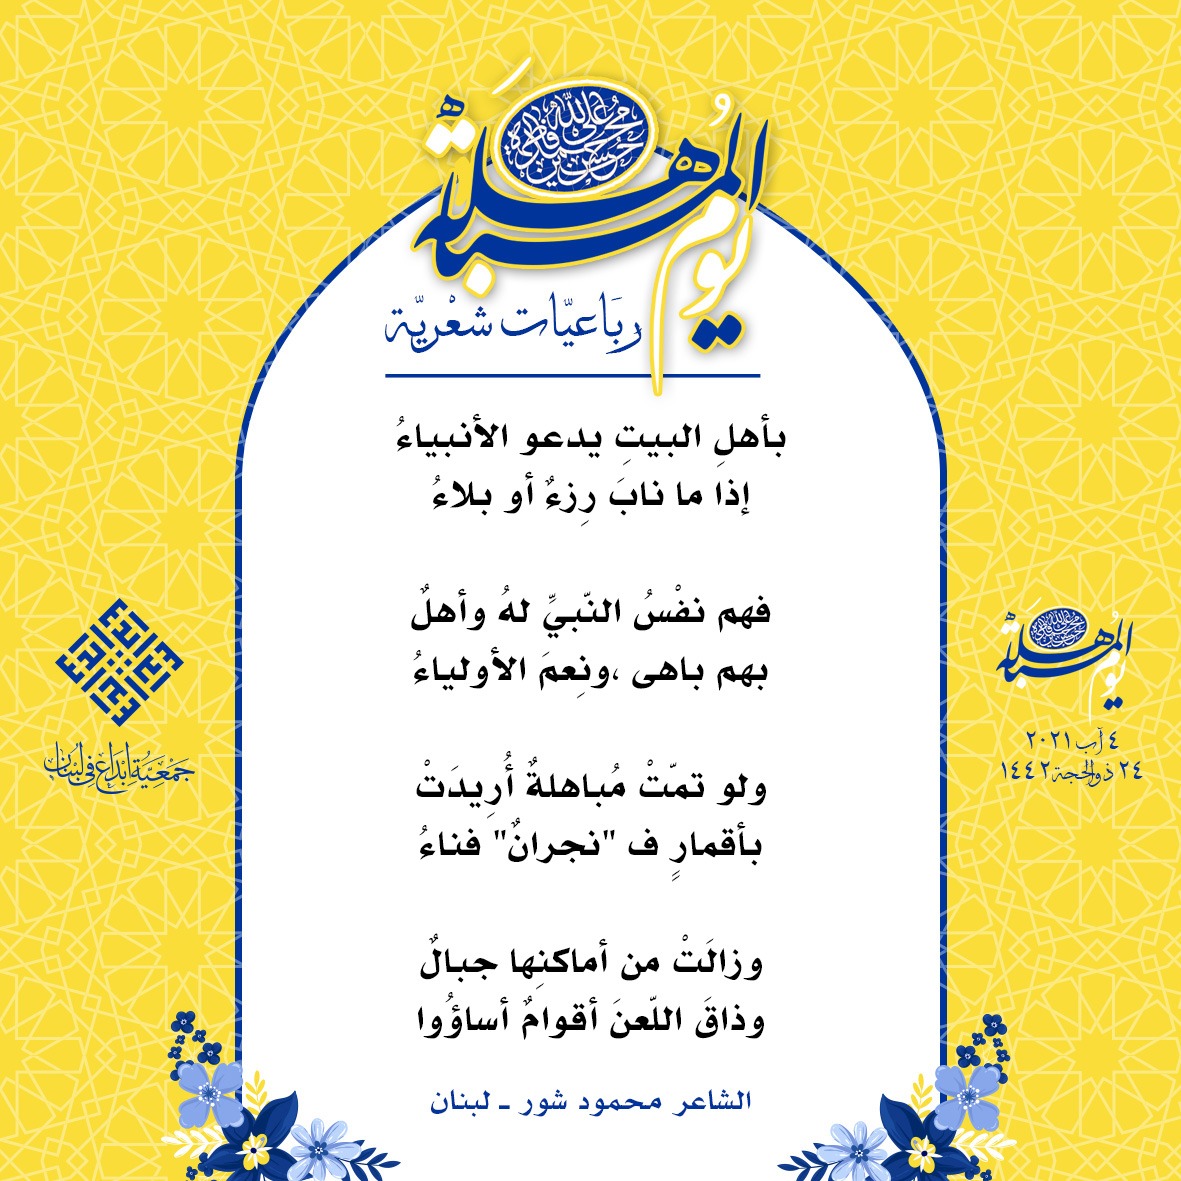 يوم المباهلة
محمد علي فاطمة حسن حسين
رباعيّات شعْريّة
بأهلِ البيتِ يدعو الأنبياءُ
إذا ما نابَ رِزءٌ أو بلاءُ
فهم نفْسُ النّبيِّ لهُ وأهلٌ
بهم باهى ،ونِعمَ الأولياءُ
ولو تمّتْ مُباهلةٌ أُرِيدَتْ
بأقمارٍ ف "نجرانٌ" فناءُ
وزالَتْ من أماكنِها جبالٌ
وذاقَ اللّعنَ أقوامٌ أساؤُوا
الشاعر محمود شور ـ لبنان
جمعيّة إبداع في لبنان
يوم المباهلة
٤ آب ٢٠٢١
٢٤ ذو الحجة ١٤٤٢